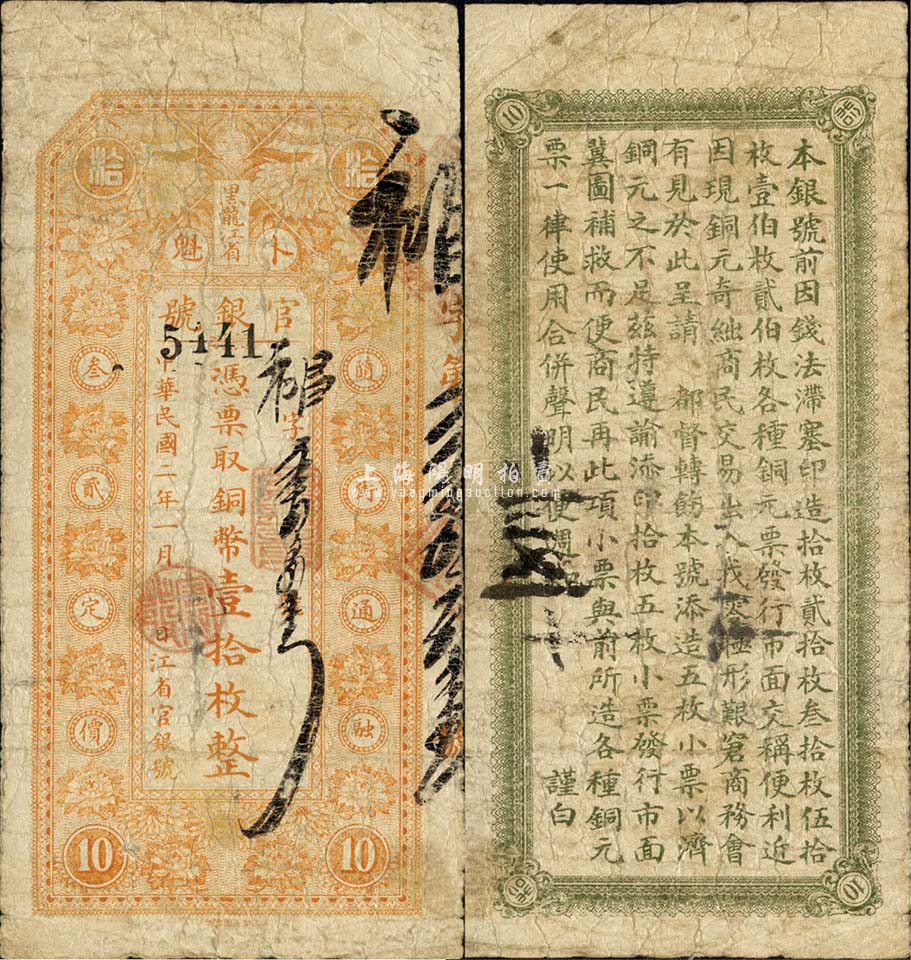 拾
拾
黑龍江省
卜魁
官銀號
5441
憑票取銅幣壹拾枚整
字
中華民國二年一月
日
江省官銀號
通融
叁貳定價
10
10
字第
號
上海陽明拍賣
www.yangmingauction.com
10
拾
本銀號前因錢法滯塞印造拾枚貳拾枚叁拾枚伍拾
枚壹伯枚貳伯枚各種銅元票發行市面交稱便利近
因現銅元奇絀商民交易出入找零極形艱窘商務會
有見於此呈請 都督轉飭本號添造五枚小票以濟
銅元之不足茲特遵諭添印拾枚五枚小票發行市面
冀圖補救而便商民再此項小票與前所造各種銅元
票一律使用合併聲明以便週知
謹白
拾
10